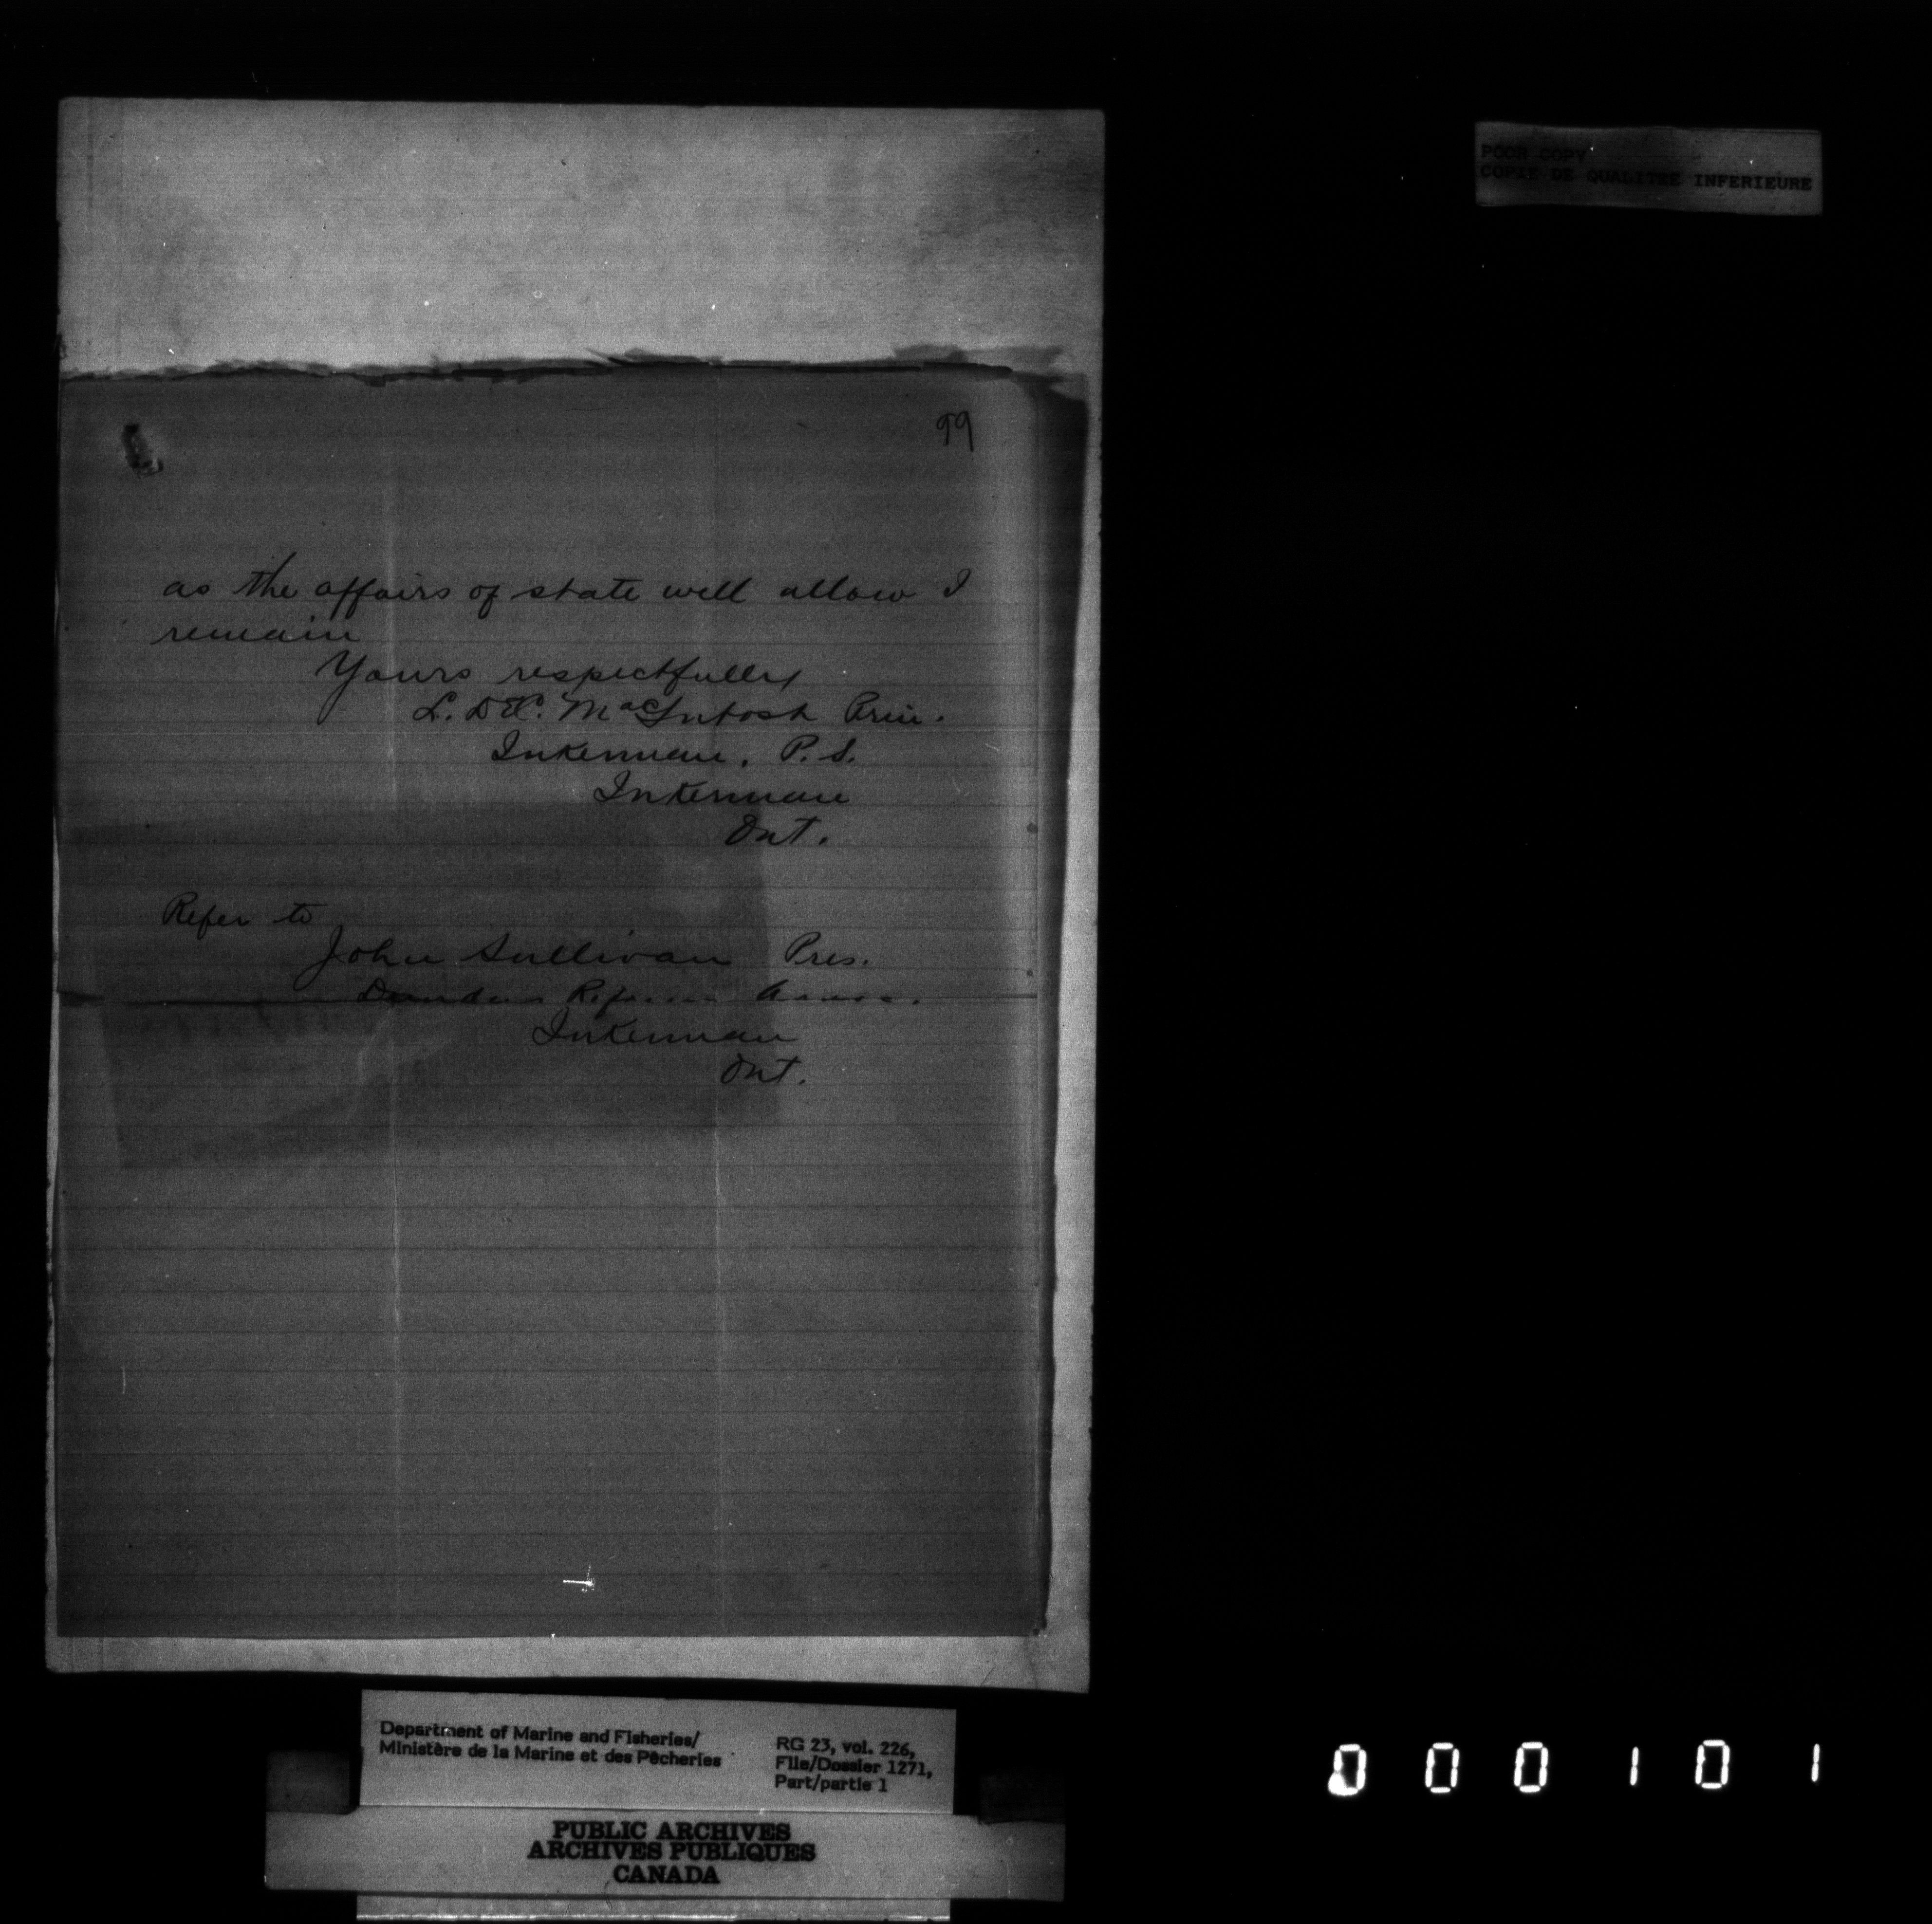 POOR COPY
COPIE DE QUALITEE INFERIEURE
99
as the affairs of state well allow I
remain
Yours respectfully
L. MacIntosh Prin.
Inkerman, P.S.
Inkerman
Ont.
Refer to
John Sullivan Pres.
Dundas Reform Assoc.
Inkerman
Ont.
Department of Marine and Fisheries/
Ministère de la Marine et des Pêcheries
RG 23, vol. 226,
File/Dossier 1271,
Part/partie 1
PUBLIC ARCHIVES
ARCHIVES PUBLIQUES
CANADA
000101